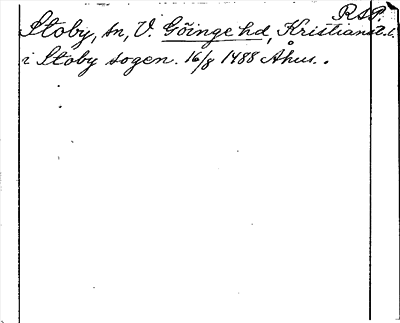 RSP.
Stoby, sn, V. Göinge hd, Kristianst. l.
i Stoby sogen. 16/8 1488 Åhus.